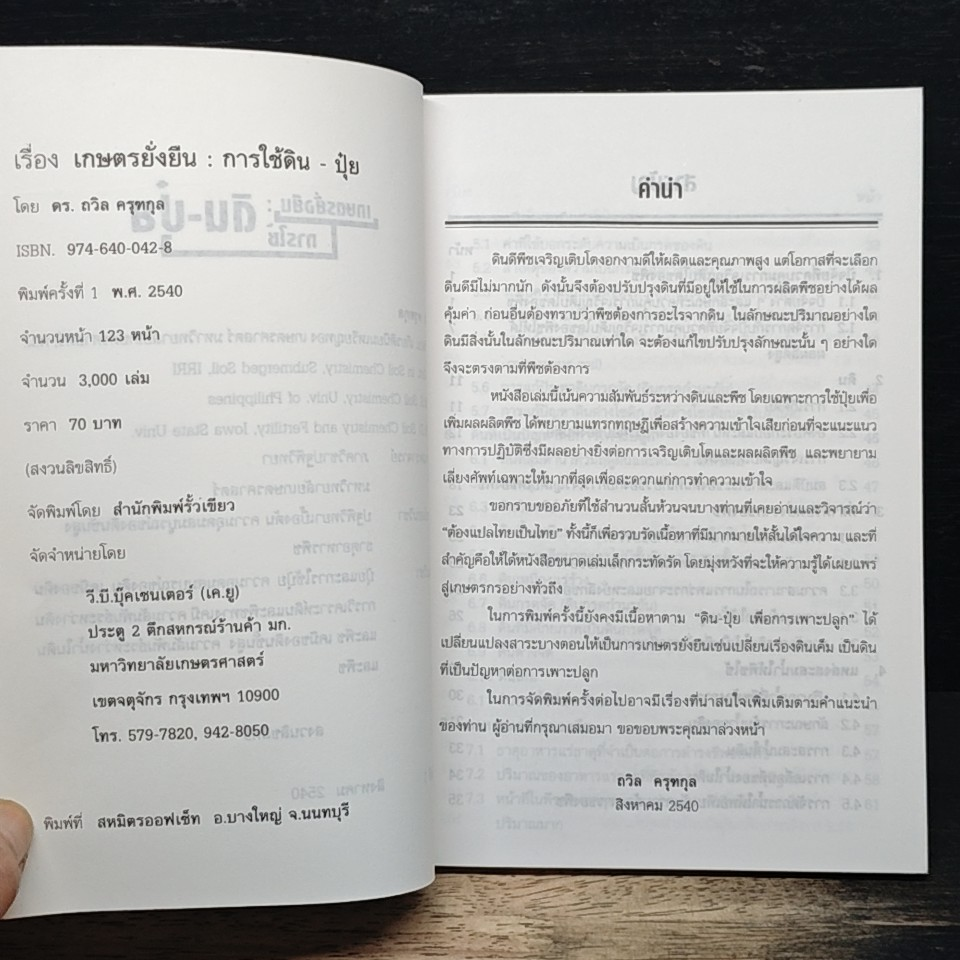 เรื่อง เกษตรยั่งยืน : การใช้ดิน - ปุ๋ย
โดย ดร. ถวิล ครุฑกุล
ISBN. 974-640-042-8
พิมพ์ครั้งที่ 1 พ.ศ. 2540
จำนวนหน้า 123 หน้า
จำนวน 3,000 เล่ม
ราคา 70 บาท
(สงวนลิขสิทธิ์)
จัดพิมพ์โดย สำนักพิมพ์รั้วเขียว
จัดจำหน่ายโดย
วี.บี.บุ๊คเซนเตอร์ (เค.ยู)
ประตู 2 ตึกสหกรณ์ร้านค้า มก.
มหาวิทยาลัยเกษตรศาสตร์
เขตจตุจักร กรุงเทพฯ 10900
โทร. 579-7820, 942-8050
พิมพ์ที่ สหมิตรออฟเซ็ท อ.บางใหญ่ จ.นนทบุรี
คำนำ
ดินดีพืชเจริญเติบโตงอกงามดีให้ผลิตและคุณภาพสูง แต่โอกาสที่จะเลือก
ดินดีมีไม่มากนัก ดังนั้นจึงต้องปรับปรุงดินที่มีอยู่ให้ใช้ในการผลิตพืชอย่างได้ผล
คุ้มค่า ก่อนอื่นต้องทราบว่าพืชต้องการอะไรจากดิน ในลักษณะปริมาณอย่างใด
ดินมีสิ่งนั้นในลักษณะปริมาณเท่าใด จะต้องแก้ไขปรับปรุงลักษณะนั้น ๆ อย่างใด
จึงจะตรงตามที่พืชต้องการ
หนังสือเล่มนี้เน้นความสัมพันธ์ระหว่างดินและพืช โดยเฉพาะการใช้ปุ๋ยเพื่อ
เพิ่มผลผลิตพืช ได้พยายามแทรกทฤษฎีเพื่อสร้างความเข้าใจเสียก่อนที่จะแนะแนว
ทางการปฏิบัติซึ่งมีผลอย่างยิ่งต่อการเจริญเติบโตและผลผลิตพืช และพยายาม
เลี่ยงศัพท์เฉพาะให้มากที่สุดเพื่อสะดวกแก่การทำความเข้าใจ
ขอกราบขออภัยที่ใช้สำนวนสั้นห้วนจนบางท่านที่เคยอ่านและวิจารณ์ว่า
“ต้องแปลไทยเป็นไทย” ทั้งนี้ก็เพื่อรวบรัดเนื้อหาที่มีมากมายให้สั้นได้ใจความ และที่
สำคัญคือให้ได้หนังสือขนาดเล่มเล็กกระทัดรัด โดยมุ่งหวังที่จะให้ความรู้ได้เผยแพร่
สู่เกษตรกรอย่างทั่วถึง
ในการพิมพ์ครั้งนี้ยังคงมีเนื้อหาตาม “ดิน-ปุ๋ย เพื่อการเพาะปลูก” ได้
เปลี่ยนแปลงสาระบางตอนให้เป็นการเกษตรยั่งยืนเช่นเปลี่ยนเรื่องดินเค็ม เป็นดิน
ที่เป็นปัญหาต่อการเพาะปลูก
ในการจัดพิมพ์ครั้งต่อไปอาจมีเรื่องที่น่าสนใจเพิ่มเติมตามคำแนะนำ
ของท่าน ผู้อ่านที่กรุณาเสมอมา ขอขอบพระคุณมาล่วงหน้า
ถวิล ครุฑกุล
สิงหาคม 2540